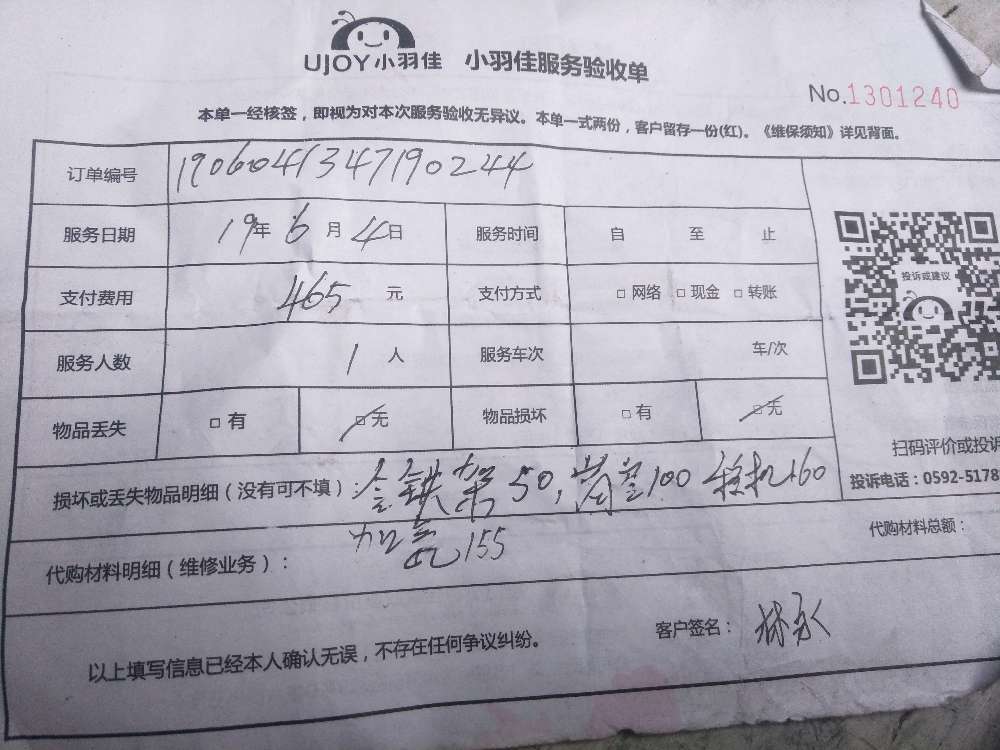 UJOY小羽佳 小羽佳服务验收单
No.1301240
本单一经核签，即视为对本次服务验收无异议。本单一式两份，客户留存一份(红)。《维保须知》详见背面。
订单编号 1906041347190244
服务日期 19年 6月 4日 服务时间 自 至 止
投诉或建议
支付费用 465 元 支付方式 □ 网络 □ 现金 □ 转账
服务人数 1 人 服务车次 车/次
物品丢失 □ 有 □ 无 物品损坏 □ 有 □ 无
扫码评价或投诉
投诉电话：0592-5178
损坏或丢失物品明细（没有可不填）： 铁架50, 100 移机160
代购材料明细（维修业务）： 加氟155 代购材料总额：
以上填写信息已经本人确认无误，不存在任何争议纠纷。 客户签名： 林永